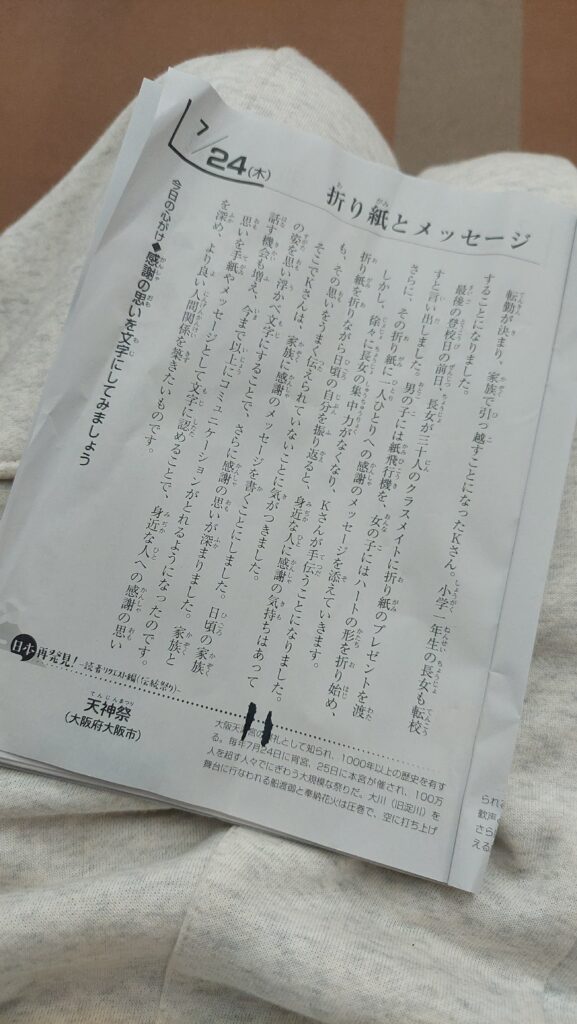 7/24(木)
折り紙とメッセージ
転勤が決まり、家族で引っ越すことになったKさん。小学一年生の長女も転校
することになりました。
最後の登校日の前日、長女が三十人のクラスメイトに折り紙のプレゼントを渡
すと言い出しました。男の子には紙飛行機を、女の子にはハートの形を折り始め、
さらに、その折り紙に一人ひとりへの感謝のメッセージを添えていきます。
しかし、徐々に長女の集中力がなくなり、Kさんが手伝うことになりました。
折り紙を折りながら日頃の自分を振り返ると、身近な人に感謝の気持ちはあって
も、その思いをうまく伝えられていないことに気がつきました。
そこでKさんは、家族に感謝のメッセージを書くことにしました。日頃の家族
の姿を思い浮かべ文字にすることで、さらに感謝の思いが深まりました。家族と
話す機会も増え、今まで以上にコミュニケーションがとれるようになったのです。
思いを手紙やメッセージとして文字に認めることで、身近な人への感謝の思い
を深め、より良い人間関係を築きたいものです。
今日の心がけ◆感謝の思いを文字にしてみましょう
日本再発見!―読者リクエスト編(伝統祭り)―
天神祭
(大阪府大阪市)
大阪天 宮の 礼として知られ、1000年以上の歴史を有す
る。毎年7月24日に宵宮、25日に本宮が催され、100万
人を超す人々でにぎわう大規模な祭りだ。大川(旧淀川)を
舞台に行なわれる船渡御と奉納花火は圧巻で、空に打ち上げ
られ
歓声
さら
える